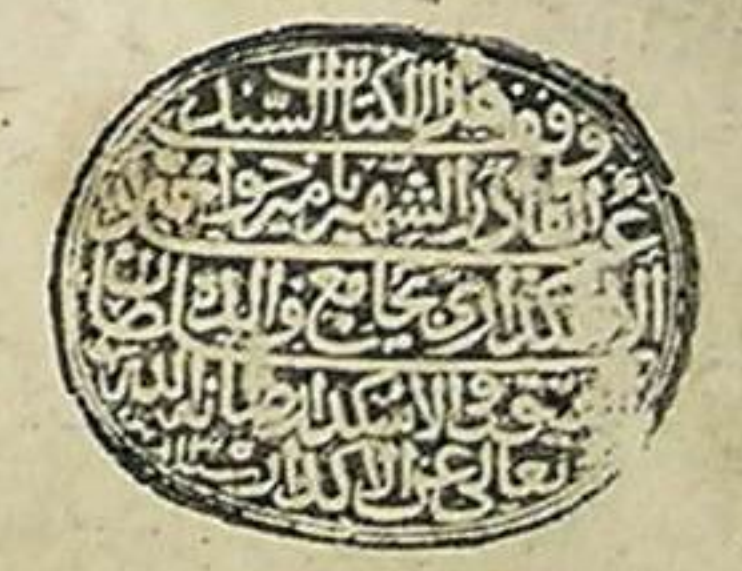 وقف هذا الكتاب السيد
القادر الشهير بامير خواجه
الاسكداري بجامع والده سلطان
الاسكدار صانها الله
تعالى عن الاكدار سنة